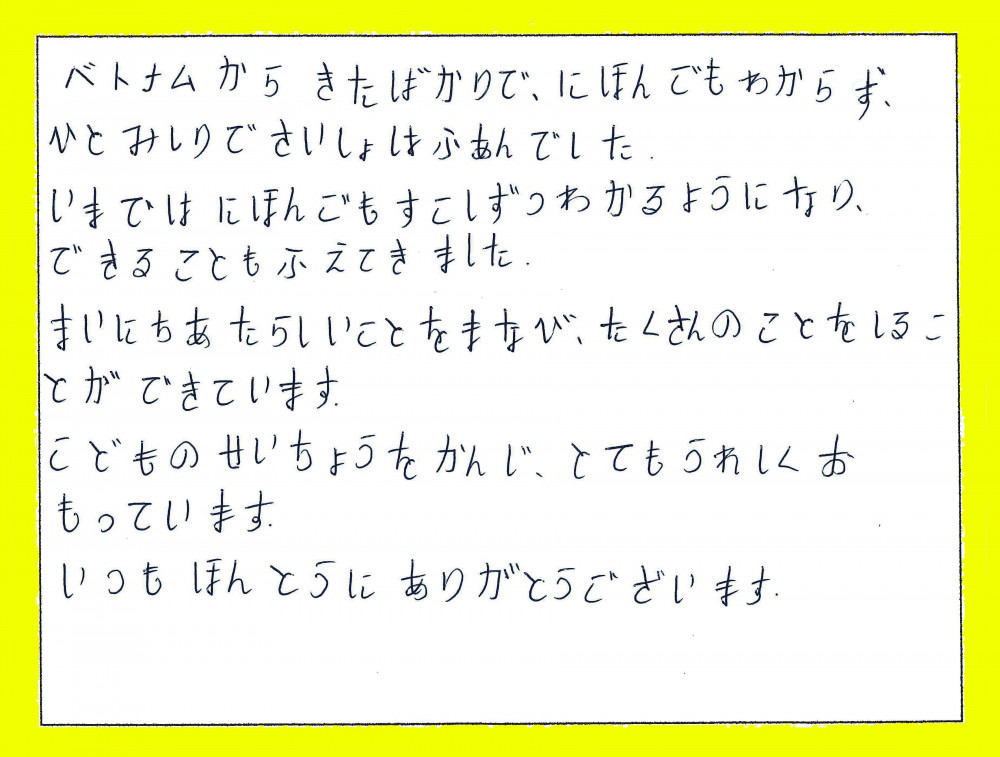 ベトナムから きたばかりで、にほんごもわからず、
ひとみしりでさいしょはふあんでした.
いまでは にほんごもすこしずつわかるようになり、
できることもふえてきました.
まいにちあたらしいことをまなび、たくさんのことをしるこ
とが できています.
こどものせいちょうをかんじ、とてもうれしくお
もっています.
いつも ほんとうに ありがとうございます.